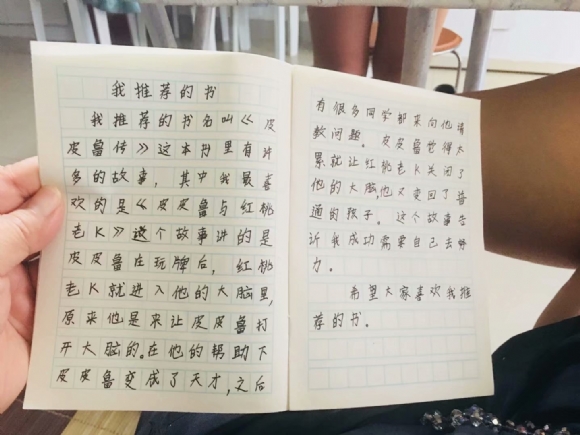 我推荐的书
我推荐的书名叫《皮
皮鲁传》这本书里有许
多的故事，其中我最喜
欢的是《皮皮鲁与红桃
老K》这个故事讲的是
皮皮鲁在玩牌后，红桃
老K就进入他的大脑里，
原来他是来让皮皮鲁打
开大脑的。在他的帮助下
皮皮鲁变成了天才，之后
有很多同学都来向他请
教问题。皮皮鲁觉得太
累就让红桃老K关闭了
他的大脑，他又变回了普
通的孩子。这个故事告
诉我成功需要自己去努
力。
希望大家喜欢我推
荐的书。